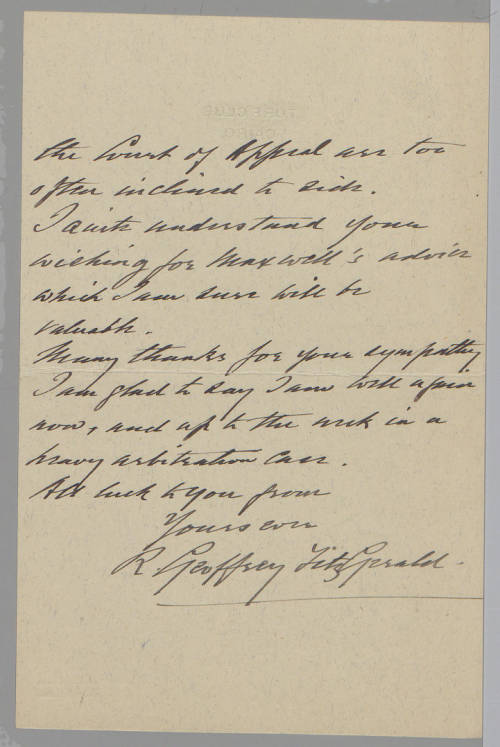 the Court of Appeal are too
often inclined to side.
I quite understand your
wishing for Maxwell's advice
which I am sure will be
valuable.
Many thanks for your sympathy
I am glad to say I am well again
now, and up to the neck in a
heavy arbitration case.
All luck to you from
Yours ever
R. Geoffrey FitzGerald.